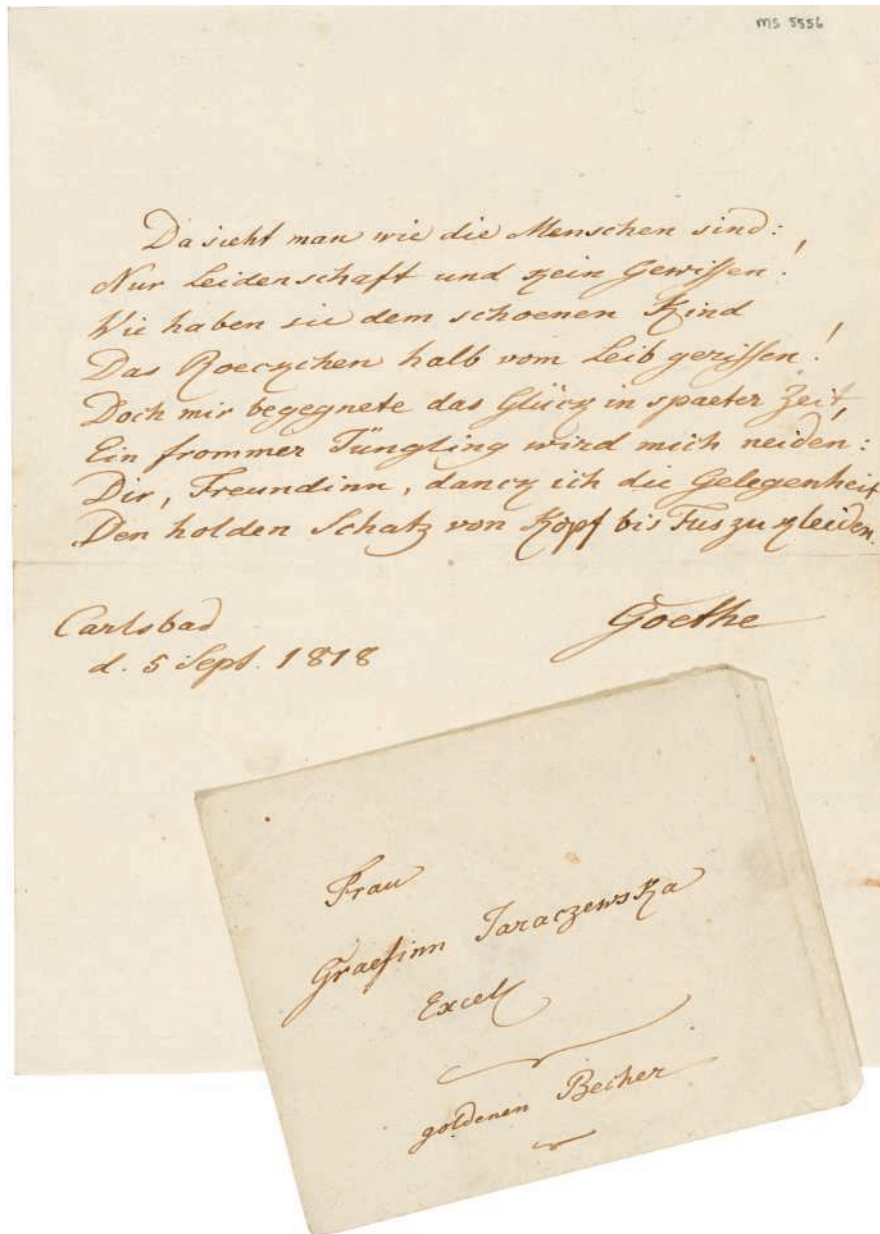 MS 5556
Da sieht man wie die Menschen sind:
Nur Leidenschaft und kein Gewissen!
Wie haben sie dem schoenen Kind
Das Roeckchen halb vom Leib gerissen!
Doch mir begegnete das Glück in spaeter Zeit,
Ein frommer Jüngling wird mich neiden:
Dir, Freundinn, danck ich die Gelegenheit
Den holden Schatz von Kopf bis Fus zu kleiden.
Carlsbad
d. 5 Sept. 1818
Goethe
Frau
Graefinn Jaraczewska
Excell
goldenen Becher